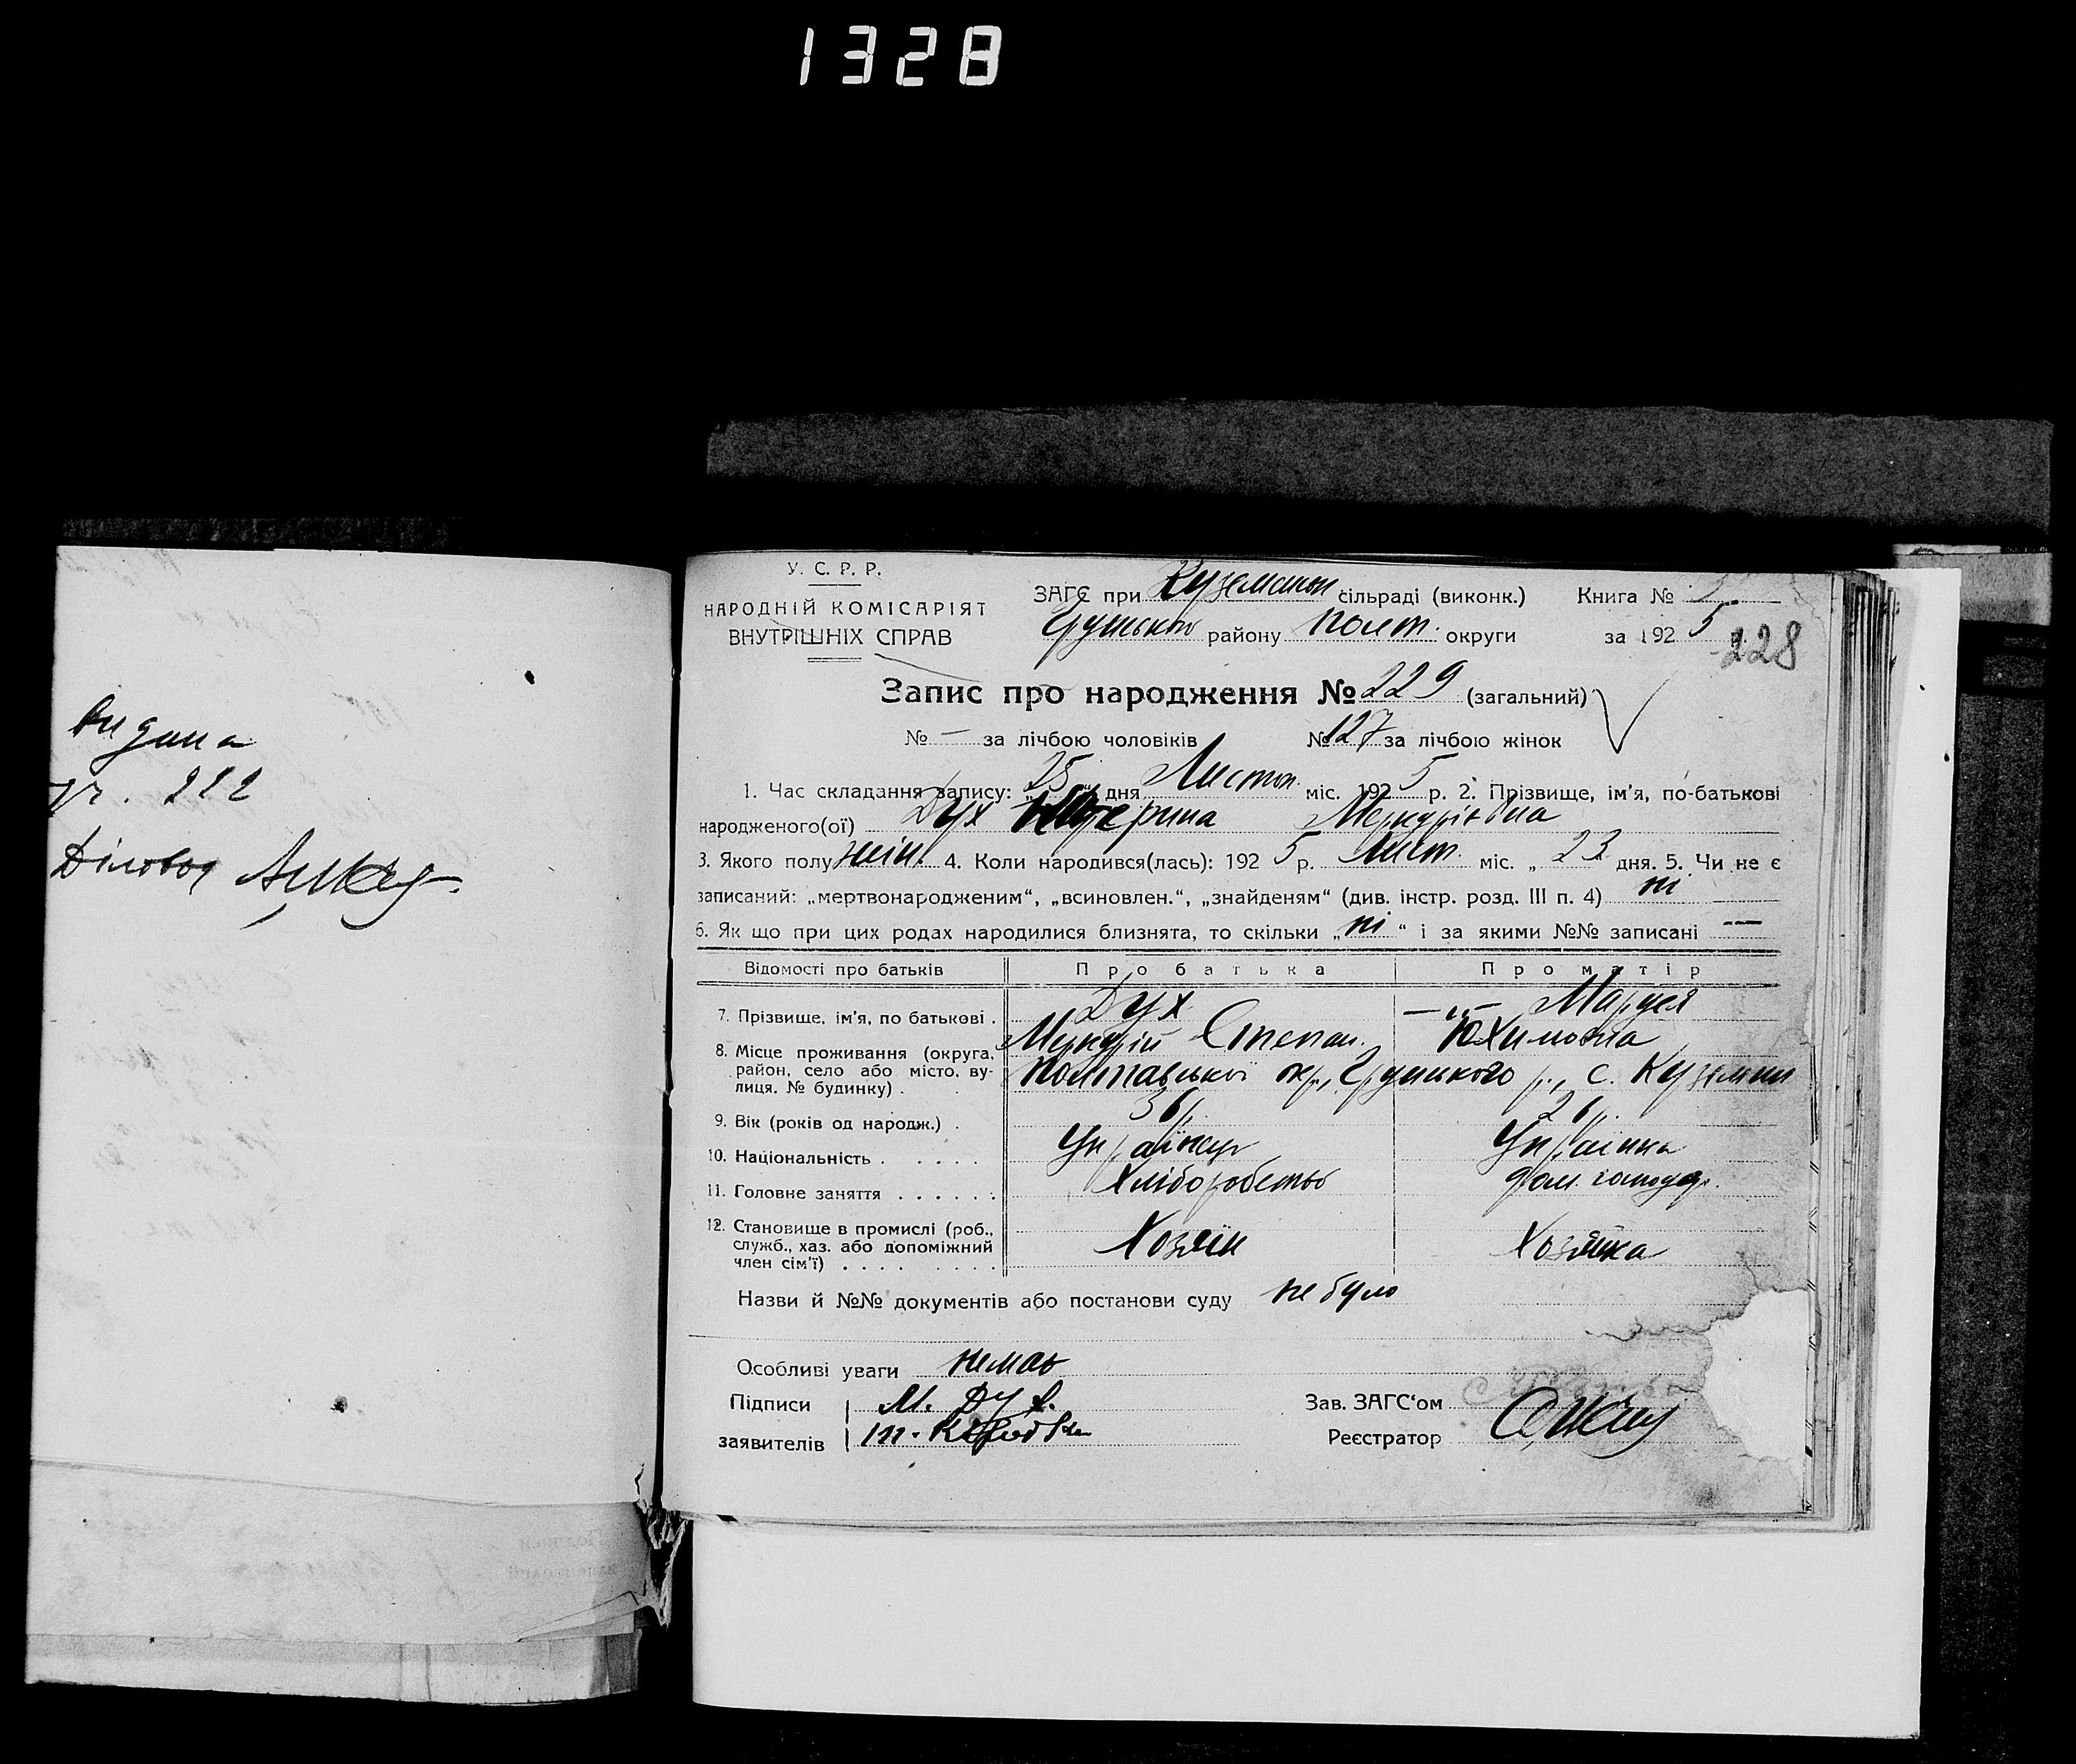 1328
Видана
222
Діловод
У. С. Р. Р.
НАРОДНІЙ КОМІСАРІЯТ
ВНУТРІШНІХ СПРАВ
ЗАГС при Куземськ сільраді (виконк.) Книга №
Грунськ району Полт. округи за 192 5 р.
228
Запис про народження № 229 (загальний)
№ — за лічбою чоловіків № 127 за лічбою жінок
1. Час складання запису: „25“ дня Листоп. міс. 192 5 р. 2. Прізвище, ім'я, по-батькові
народженого(ої) Дух Катерина Меркуріївна
3. Якого полу жін. 4. Коли народився(лась): 192 5 р. Лист. міс. „ 23 дня. 5. Чи не є
записаний: „мертвонародженим“, „всиновлен.“, „знайденям“ (див. інстр. розд. III п. 4) ні
6. Як що при цих родах народилися близнята, то скільки „ ні “ і за якими №№ записані —
Відомості про батьків Про батька Про матір
7. Прізвище, ім'я, по батькові . Дух Меркурій Степан. —„— Маруся Юхимовна
8. Місце проживання (округа, район, село або місто, вулиця, № будинку) . Полтавської окр., Грунського р., с. Куземин
9. Вік (років од народж.) . 36 р. 26 р.
10. Національність . . . . . Українець Українка
11. Головне заняття . . . . . . Хліборобство дом. господар.
12. Становище в промислі (роб., служб., хаз. або допоміжний член сім'ї) . . . . . . . . Хозяїн Хозяйка
Назви й №№ документів або постанови суду не було
Особливі уваги немає
Підписи М. Дух. Зав. ЗАГС'ом
заявителів Реєстратор